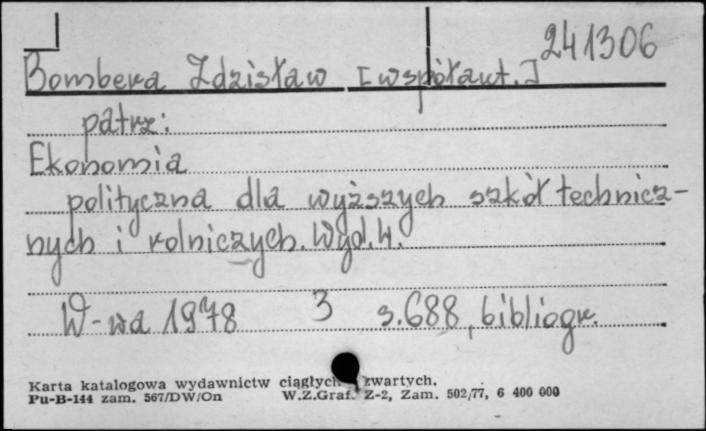 241306
Bombera Zdzisław [współaut.]
patrz:
Ekonomia
polityczna dla wyższych szkół technicz-
nych i rolniczych. Wyd. 4.
W-wa 1978 3 s. 688, bibliogr.
Karta katalogowa wydawnictw ciągłych i zwartych.
Pu-B-144 zam. 567/DW/On W.Z.Graf. Z-2, Zam. 502/77, 6 400 000